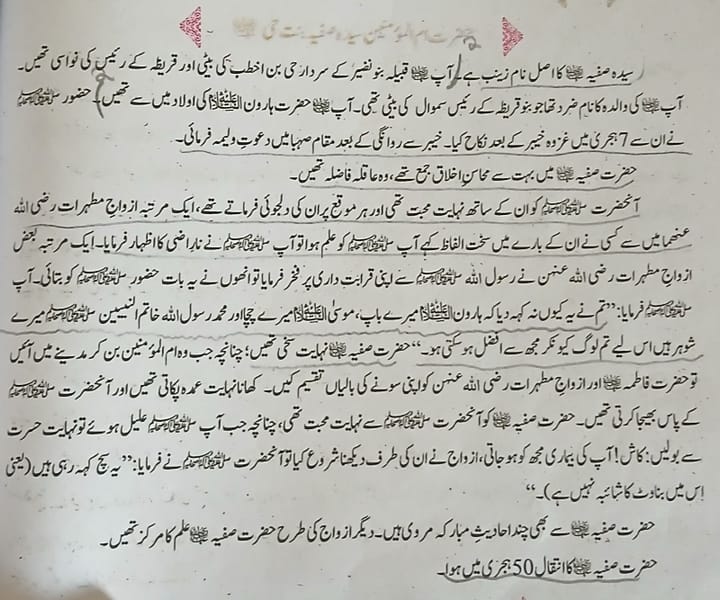 ام المؤمنین سیدہ صفیہ بنت حی
سیدہ صفیہ رضی اللہ عنہا کا اصل نام زینب ہے۔ آپ رضی اللہ عنہا قبیلہ بنو نضیر کے سردار حی بن اخطب کی بیٹی اور قریظہ کے رئیس کی نواسی تھیں۔
آپ رضی اللہ عنہا کی والدہ کا نام ضرد تھا جو بنو قریظہ کے رئیس سموال کی بیٹی تھی۔ آپ رضی اللہ عنہا حضرت ہارون علیہ السلام کی اولاد میں سے تھیں۔ حضور ﷺ
نے ان سے 7 ہجری میں غزوہ خیبر کے بعد نکاح کیا۔ خیبر سے روانگی کے بعد مقام صہبا میں دعوتِ ولیمہ فرمائی۔
حضرت صفیہ رضی اللہ عنہا میں بہت سے محاسنِ اخلاق جمع تھے، وہ عاقلہ فاضلہ تھیں۔
آنحضرت ﷺ کو ان کے ساتھ نہایت محبت تھی اور ہر موقع پر ان کی دلجوئی فرماتے تھے، ایک مرتبہ ازواجِ مطہرات رضی اللہ
عنھما میں سے کسی نے ان کے بارے میں سخت الفاظ کہے آپ ﷺ کو علم ہوا تو آپ ﷺ نے ناراضی کا اظہار فرمایا۔ ایک مرتبہ بعض
ازواجِ مطہرات رضی اللہ عنہن نے رسول اللہ ﷺ سے اپنی قرابت داری پر فخر فرمایا تو انھوں نے یہ بات حضور ﷺ کو بتائی۔ آپ
ﷺ فرمایا: ”تم نے یہ کیوں نہ کہہ دیا کہ ہارون علیہ السلام میرے باپ، موسیٰ علیہ السلام میرے چچا اور محمد رسول اللہ خاتم النبیین ﷺ میرے
شوہر ہیں اس لیے تم لوگ کیونکر مجھ سے افضل ہو سکتی ہو۔“ حضرت صفیہ رضی اللہ عنہا نہایت سخی تھیں؛ چنانچہ جب وہ ام المؤمنین بن کر مدینے میں آئیں
تو حضرت فاطمہ رضی اللہ عنہا اور ازواجِ مطہرات رضی اللہ عنہن کو اپنی سونے کی بالیاں تقسیم کیں۔ کھانا نہایت عمدہ پکاتی تھیں اور آنحضرت ﷺ
کے پاس بھیجا کرتی تھیں۔ حضرت صفیہ رضی اللہ عنہا کو آنحضرت ﷺ سے نہایت محبت تھی، چنانچہ جب آپ ﷺ علیل ہوئے تو نہایت حسرت
سے بولیں: کاش! آپ کی بیماری مجھ کو ہو جاتی، ازواج نے ان کی طرف دیکھنا شروع کیا تو آنحضرت ﷺ نے فرمایا: ”یہ سچ کہہ رہی ہیں (یعنی
اس میں بناوٹ کا شائبہ نہیں ہے)۔“
حضرت صفیہ رضی اللہ عنہا سے بھی چند احادیثِ مبارکہ مروی ہیں۔ دیگر ازواج کی طرح حضرت صفیہ رضی اللہ عنہا علم کا مرکز تھیں۔
حضرت صفیہ رضی اللہ عنہا کا انتقال 50 ہجری میں ہوا۔